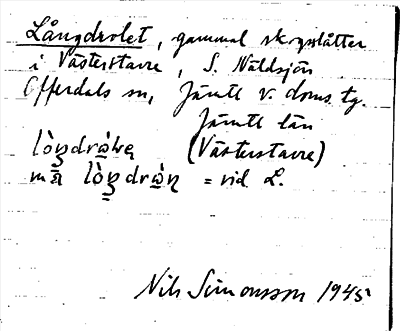 Långdrolet, gammal skogsslåtter
i Västerstavre, S. Näldsjön
Offerdals sn, Jämtl v. doms. tg.
Jämtl län
(Västerstavre)
= vid L.
Nils Simonsson 1945